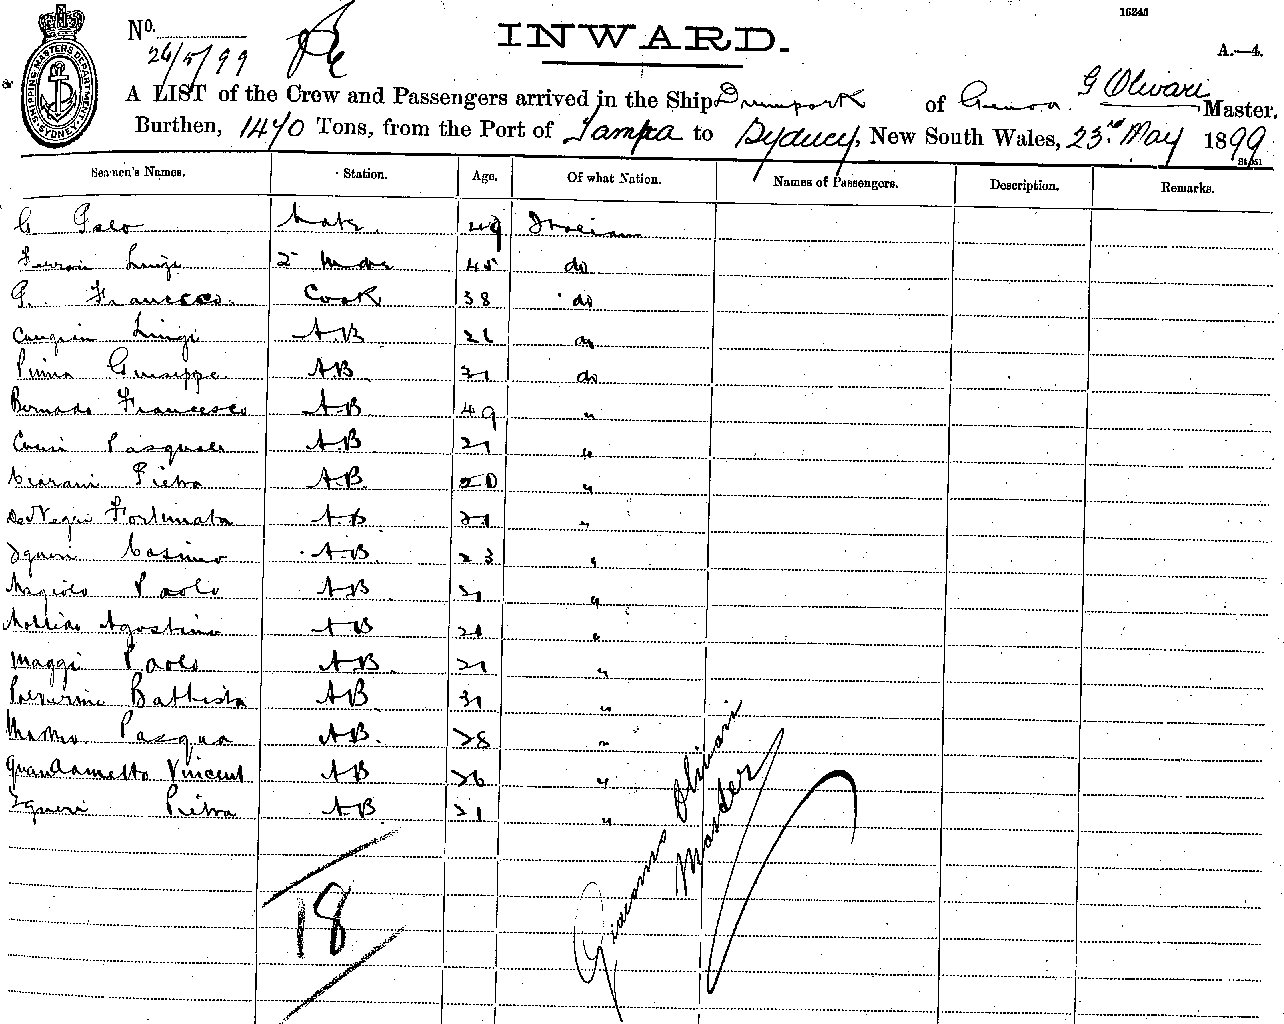 16241
No.
26/5/99
INWARD.
A.—4.
SHIPPING MASTERS DEPARTMENT SYDNEY
A LIST of the Crew and Passengers arrived in the Ship Drumpark of Genoa. G Olivari Master.
Burthen, 1470 Tons, from the Port of Tampa to Sydney, New South Wales, 23rd May 1899
Seamen's Names. Station. Age. Of what Nation. Names of Passengers. Description. Remarks.
G Mate 49 Italian
Luigi 2 Mate 45 do
G. Francesco Cook 38 do
Luigi AB 26 do
Giuseppe AB 31 do
Francesco AB 49 "
Pasquale AB 21 "
Pietro AB 20 "
Fortunata AB 21 "
Casimo AB 23 "
Paolo AB 21 "
Agostino AB 21 "
Maggi Paolo AB 21 "
Battista AB 31 "
Pasqua AB 28 "
Vincent AB 26 "
Pietro AB 21 "
18
Giacomo Olivari
Master